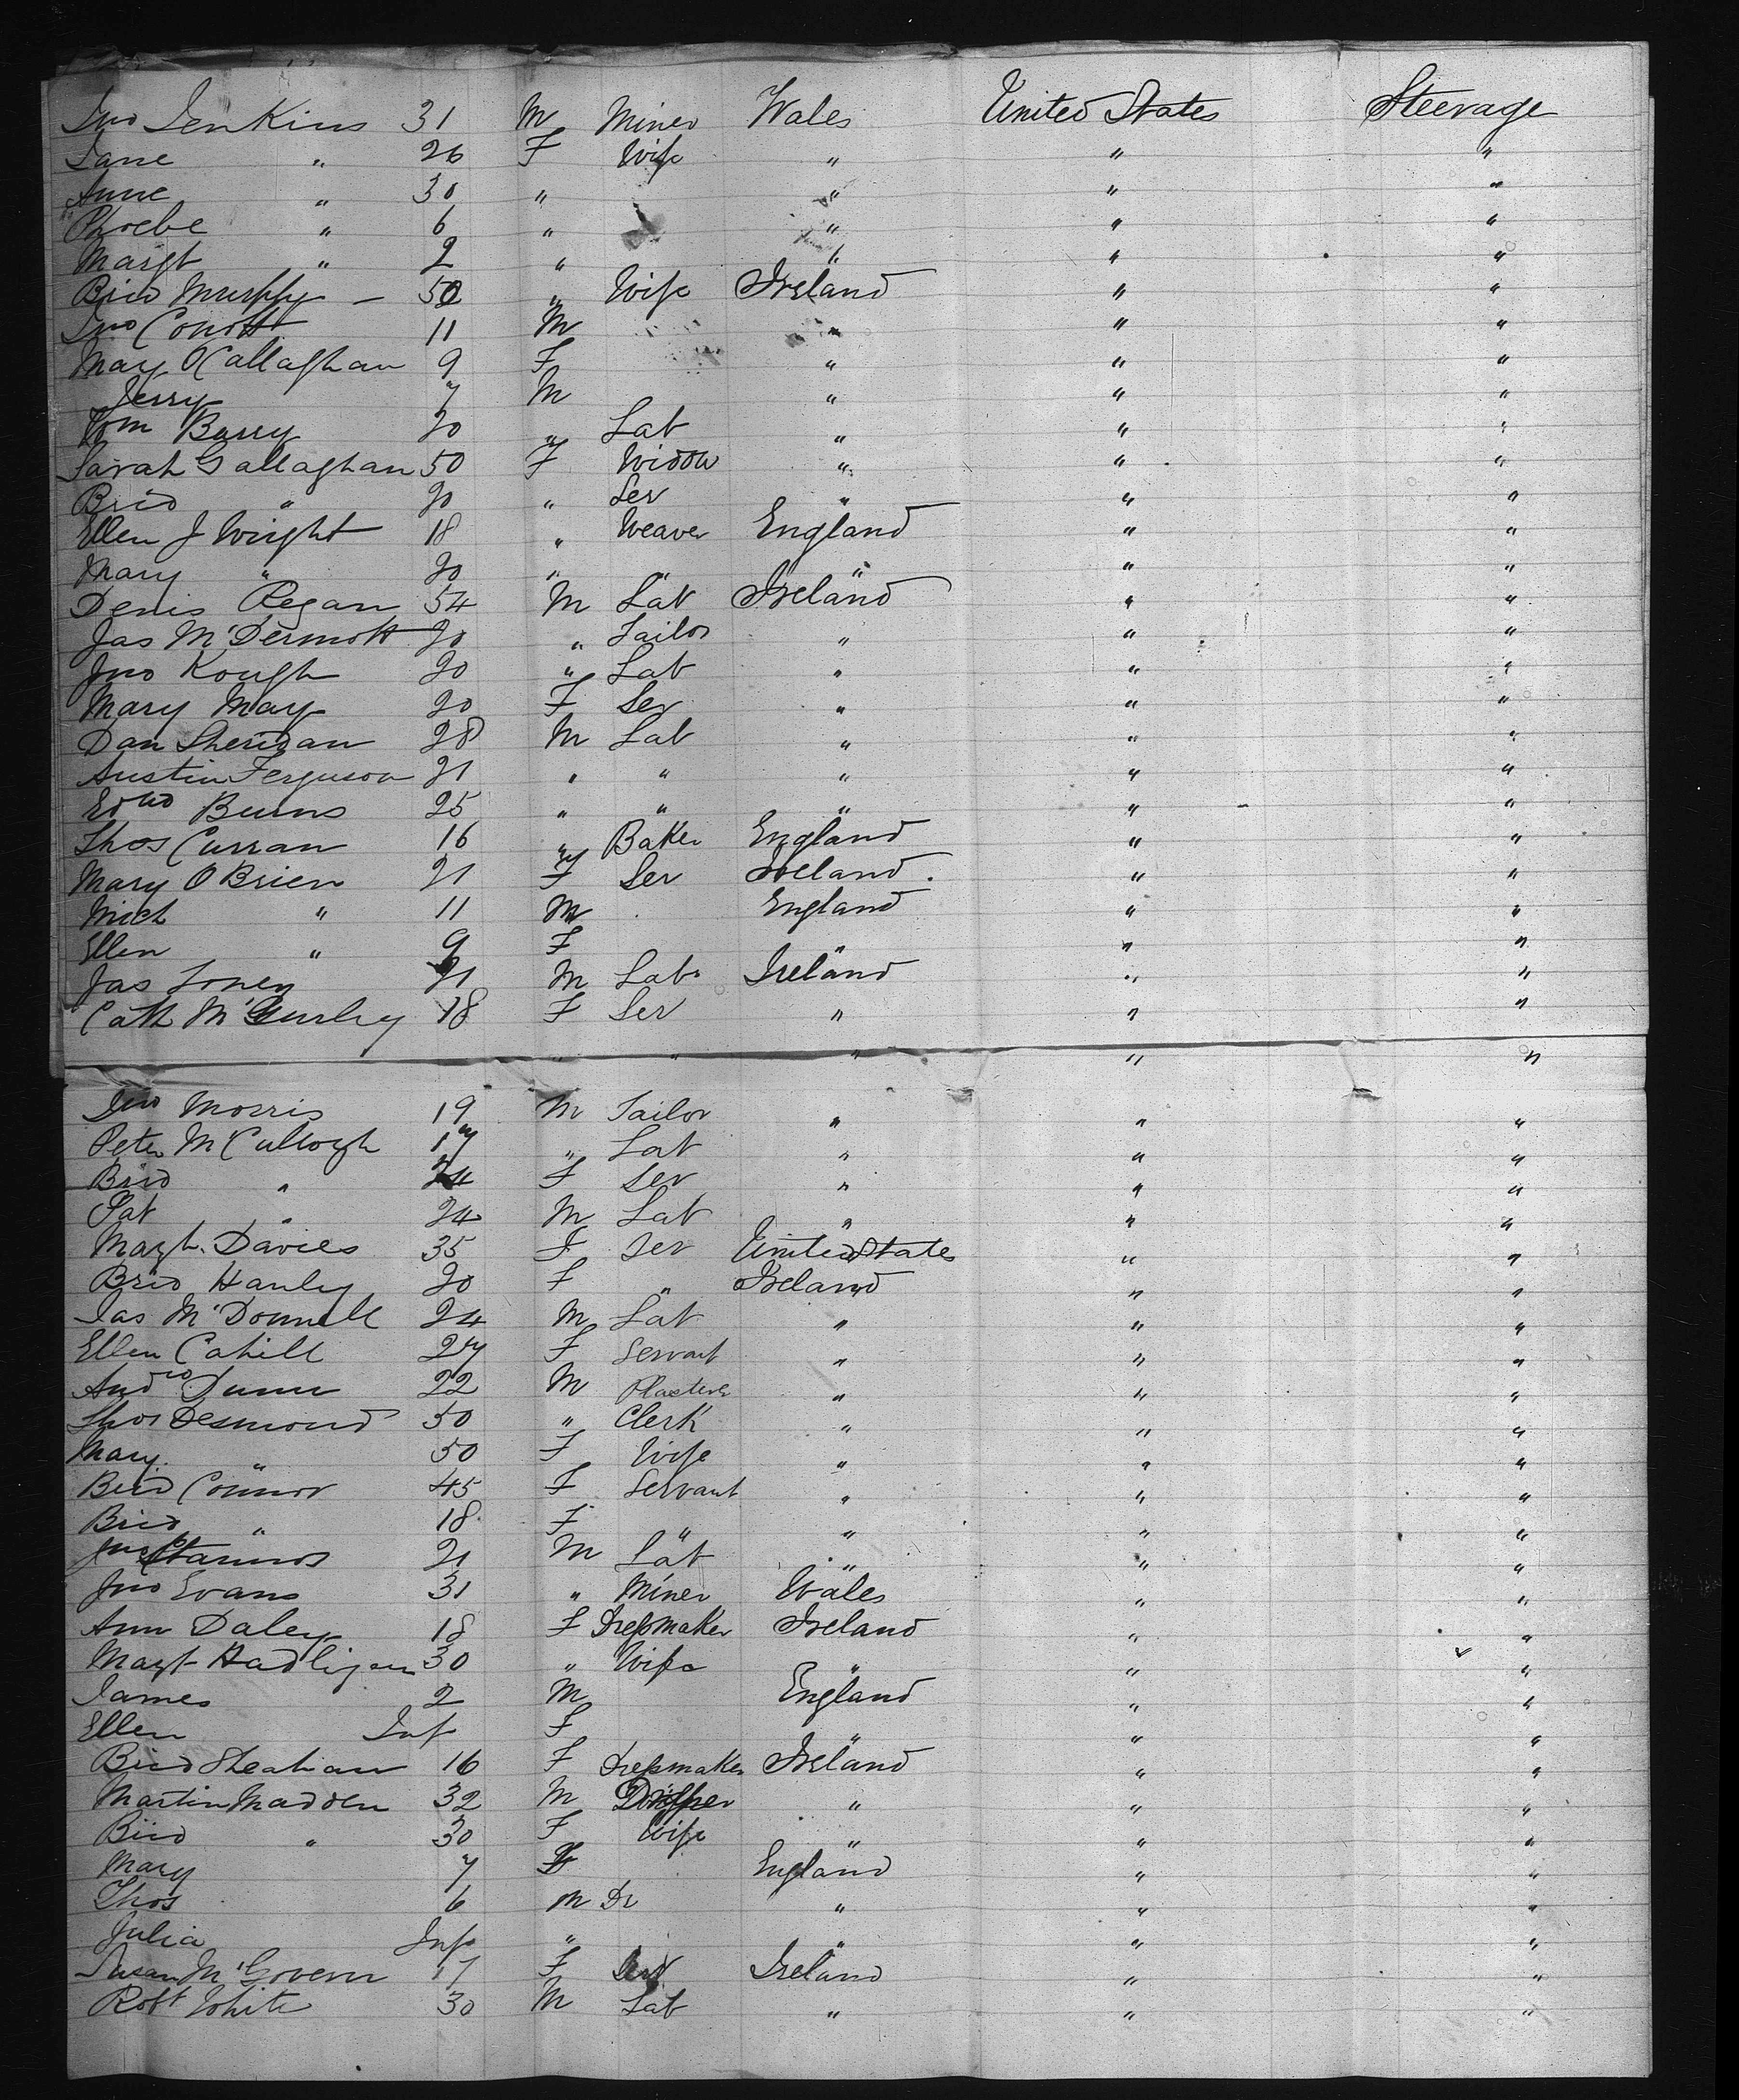 Jno Jenkins 31 M Miner Wales United States Steerage
Jane " 26 F Wife " " "
Anne " 30 " " " "
Phoebe " 6 " " " "
Margt " 2 " " " "
Brid Murphy - 50 " Wife Ireland " "
Jno 11 M " " "
Mary O'Callaghan 9 F " " "
Jerry 7 M " " "
Wm Barry 20 " Lab " " "
Sarah Gallaghan 50 F Widow " " "
Brid " 20 " Ser " " "
Ellen J Wright 18 " Weaver England " "
Mary " 20 " " " " "
Denis Regan 54 M Lab Ireland " "
Jas McDermott 20 " Tailor " " "
Jno Kough 20 " Lab " " "
Mary May 20 F Ser " " "
Dan Sheridan 28 M Lab " " "
Austin Ferguson 21 " " " " "
Edwd Burns 25 " " " " "
Thos Curran 16 " Baker England " "
Mary O'Brien 21 F Ser Ireland " "
Mich " 11 M England " "
Ellen " 9 F " " "
Jas Toney 21 M Lab Ireland " "
Cath 18 F Ser " " "
" " " " "
Jno Morris 19 M Tailor " " "
Peter McCullogh 17 " Lab " " "
Brid " 24 F Ser " " "
Pat " 24 M Lab " " "
Margt. Davies 35 F Ser United States " "
Brid Hanley 20 F " Ireland " "
Jas McDonnell 24 M Lab " " "
Ellen Cahill 27 F Servant " " "
Andw Dunn 22 M Plasterer " " "
Thos Desmond 50 " Clerk " " "
Mary " 50 F Wife " " "
Brid Connor 45 F Servant " " "
Brid " 18 F " " " "
Jno 21 M Lab " " "
Jno Evans 31 " Miner Wales " "
Ann Daley 18 F Dressmaker Ireland " "
Margt Hadligan 30 " Wife " " "
James 2 M England " "
Ellen Inf F " " "
Brid Sheahan 16 F Dressmaker Ireland " "
Martin Madden 32 M " " "
Brid " 30 F Wife " " "
Mary 7 F England " "
Thos 6 M Dr " " "
Julia Inf " " " "
Susan McGovern 17 F Ireland " "
Robt White 30 M Lab " " "